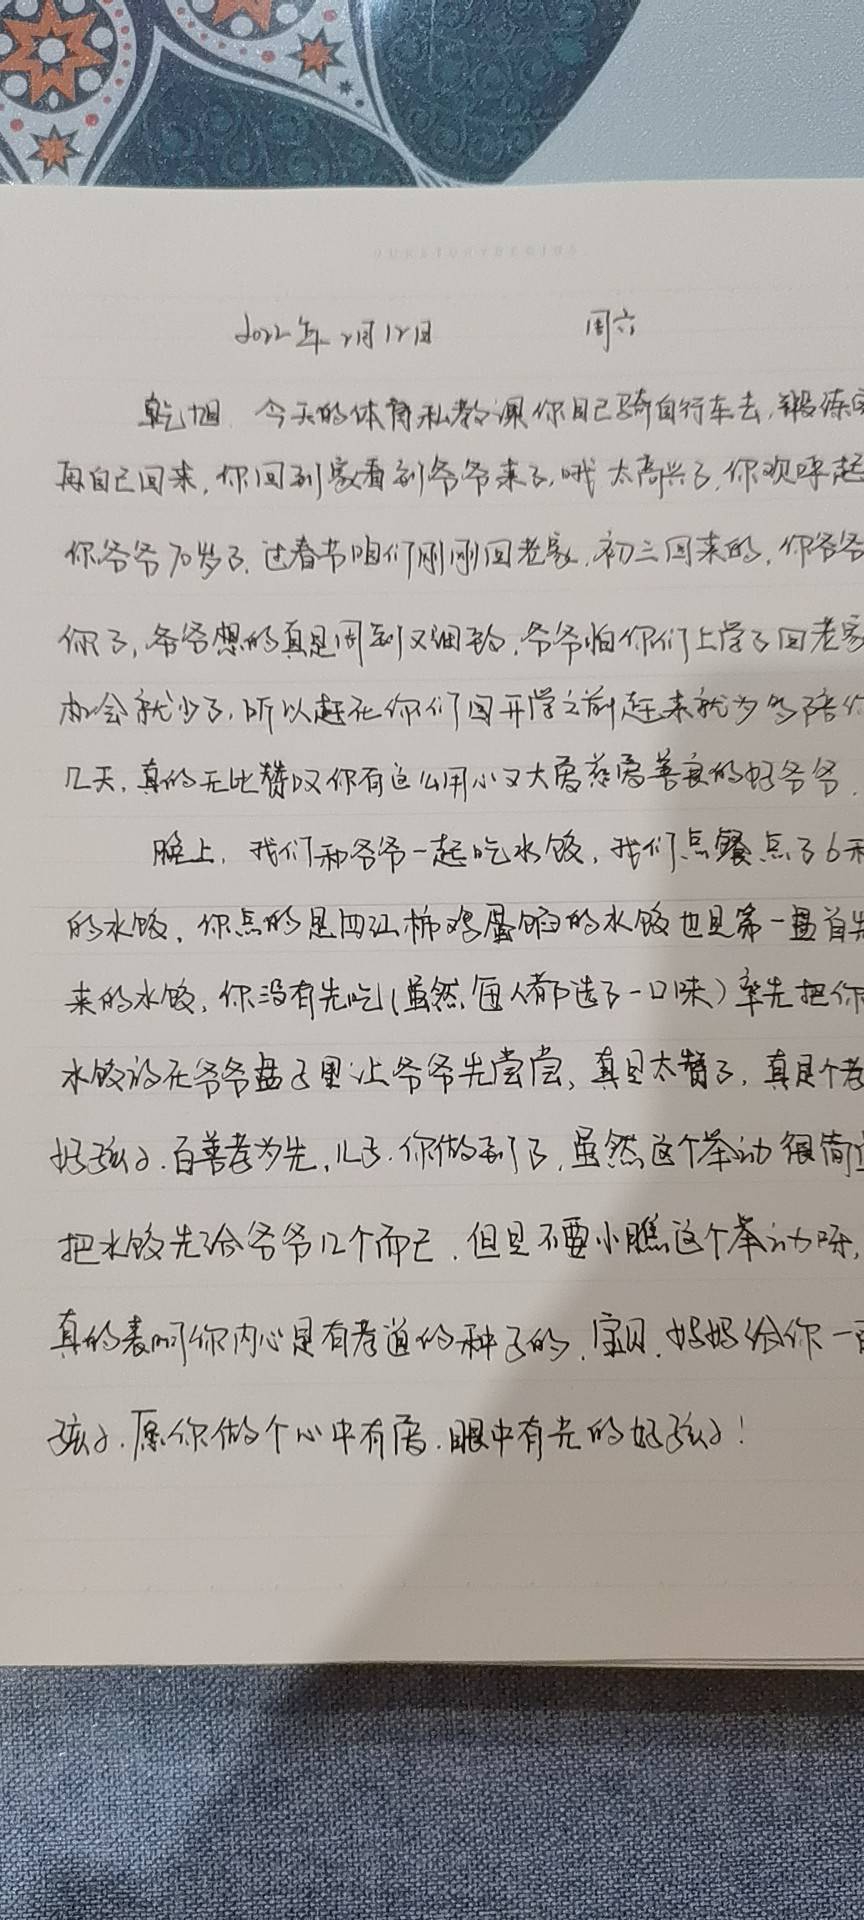 2022年2月12日 周六
乾旭，今天的体育私教课你自己骑自行车去，锻炼完
再自己回来，你回到家看到爷爷来了，哦太高兴了，你欢呼起
你爷爷70岁了，过春节咱们刚刚回老家，初三回来的，你爷爷
你了，爷爷想的真是周到又细致，爷爷怕你们上学了回老家
机会就少了，所以赶在你们回开学之前赶来就为多陪你
几天，真的无比赞叹你有这么用心又大爱慈爱善良的好爷爷．
晚上，我们和爷爷一起吃水饺，我们点餐点了6种
的水饺，你点的是西红柿鸡蛋馅的水饺也是第一盘首先
来的水饺，你没有先吃（虽然每人都选了一口味）率先把你
水饺放在爷爷盘子里让爷爷先尝尝，真是太赞了，真是个孝
好孩子．百善孝为先，儿子．你做到了，虽然这个举动很简
把水饺先给爷爷几个而已．但是不要小瞧这个举动呀，
真的表明你内心是有孝道的种子的．宝贝．妈妈给你一百
孩子．愿你做个心中有爱．眼中有光的好孩子！